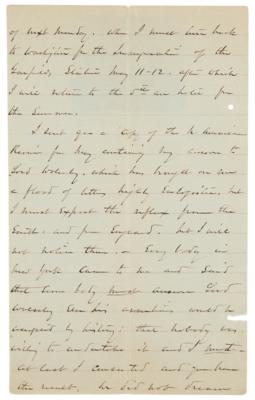 of next Monday. when I must turn back
to Washington for the Inauguration of the
Garfield Statue May 11-12. after which
I will return to the 5th av Hotel for
the Summer.
I sent you a copy of the N American
Review for May containing my answer to
Lord Wolseley, which has brought on me
a flood of letters highly Eulogistic, but
I must expect the reflex from the
South and from England. but I will
not notice them. Every body in
New York came to me and said
that somebody must answer Lord
Wolseley else his assertions would be
accepted by history: that nobody was
willing to undertake it and I must -
at last I consented and you have
the result. He did not dream